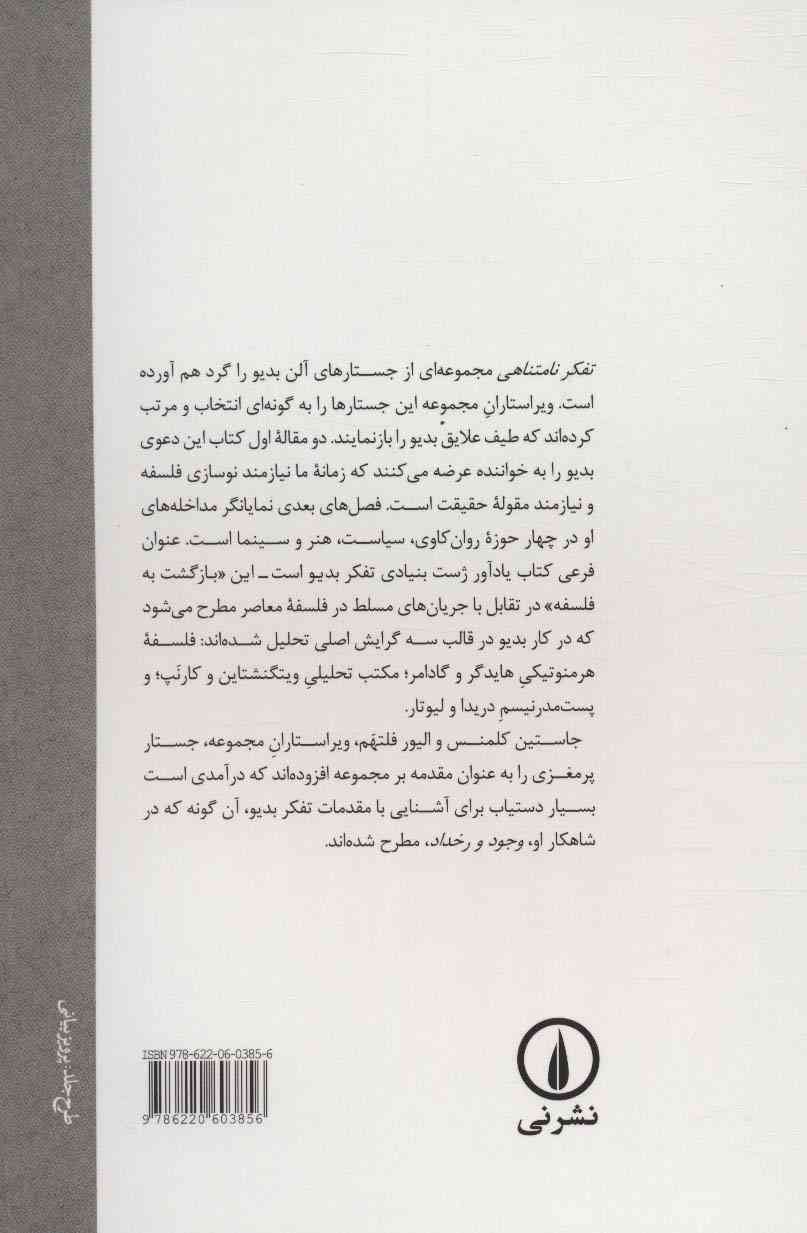 تفکر نامتناهی مجموعه‌ای از جستارهای آلن بدیو را گرد هم آورده
است. ویراستارانِ مجموعه این جستارها را به گونه‌ای انتخاب و مرتب
کرده‌اند که طیف علایقِ بدیو را بازنمایند. دو مقالهٔ اول کتاب این دعوی
بدیو را به خواننده عرضه می‌کنند که زمانهٔ ما نیازمند نوسازی فلسفه
و نیازمند مقولهٔ حقیقت است. فصل‌های بعدی نمایانگر مداخله‌های
او در چهار حوزهٔ روان‌کاوی، سیاست، هنر و سینما است. عنوان
فرعی کتاب یادآور ژست بنیادی تفکر بدیو است ـ این «بازگشت به
فلسفه» در تقابل با جریان‌های مسلط در فلسفهٔ معاصر مطرح می‌شود
که در کار بدیو در قالب سه گرایش اصلی تحلیل شده‌اند: فلسفهٔ
هرمنوتیکیِ هایدگر و گادامر؛ مکتب تحلیلیِ ویتگنشتاین و کارنَپ؛ و
پست‌مدرنیسمِ دریدا و لیوتار.
جاستین کلمنس و الیور فلتهَم، ویراستارانِ مجموعه، جستار
پرمغزی را به عنوان مقدمه بر مجموعه افزوده‌اند که درآمدی است
بسیار دستیاب برای آشنایی با مقدمات تفکر بدیو، آن گونه که در
شاهکار او، وجود و رخداد، مطرح شده‌اند.
طرح جلد: پرویز بیانی
ISBN 978-622-06-0385-6
9 786220 603856
نشر نی